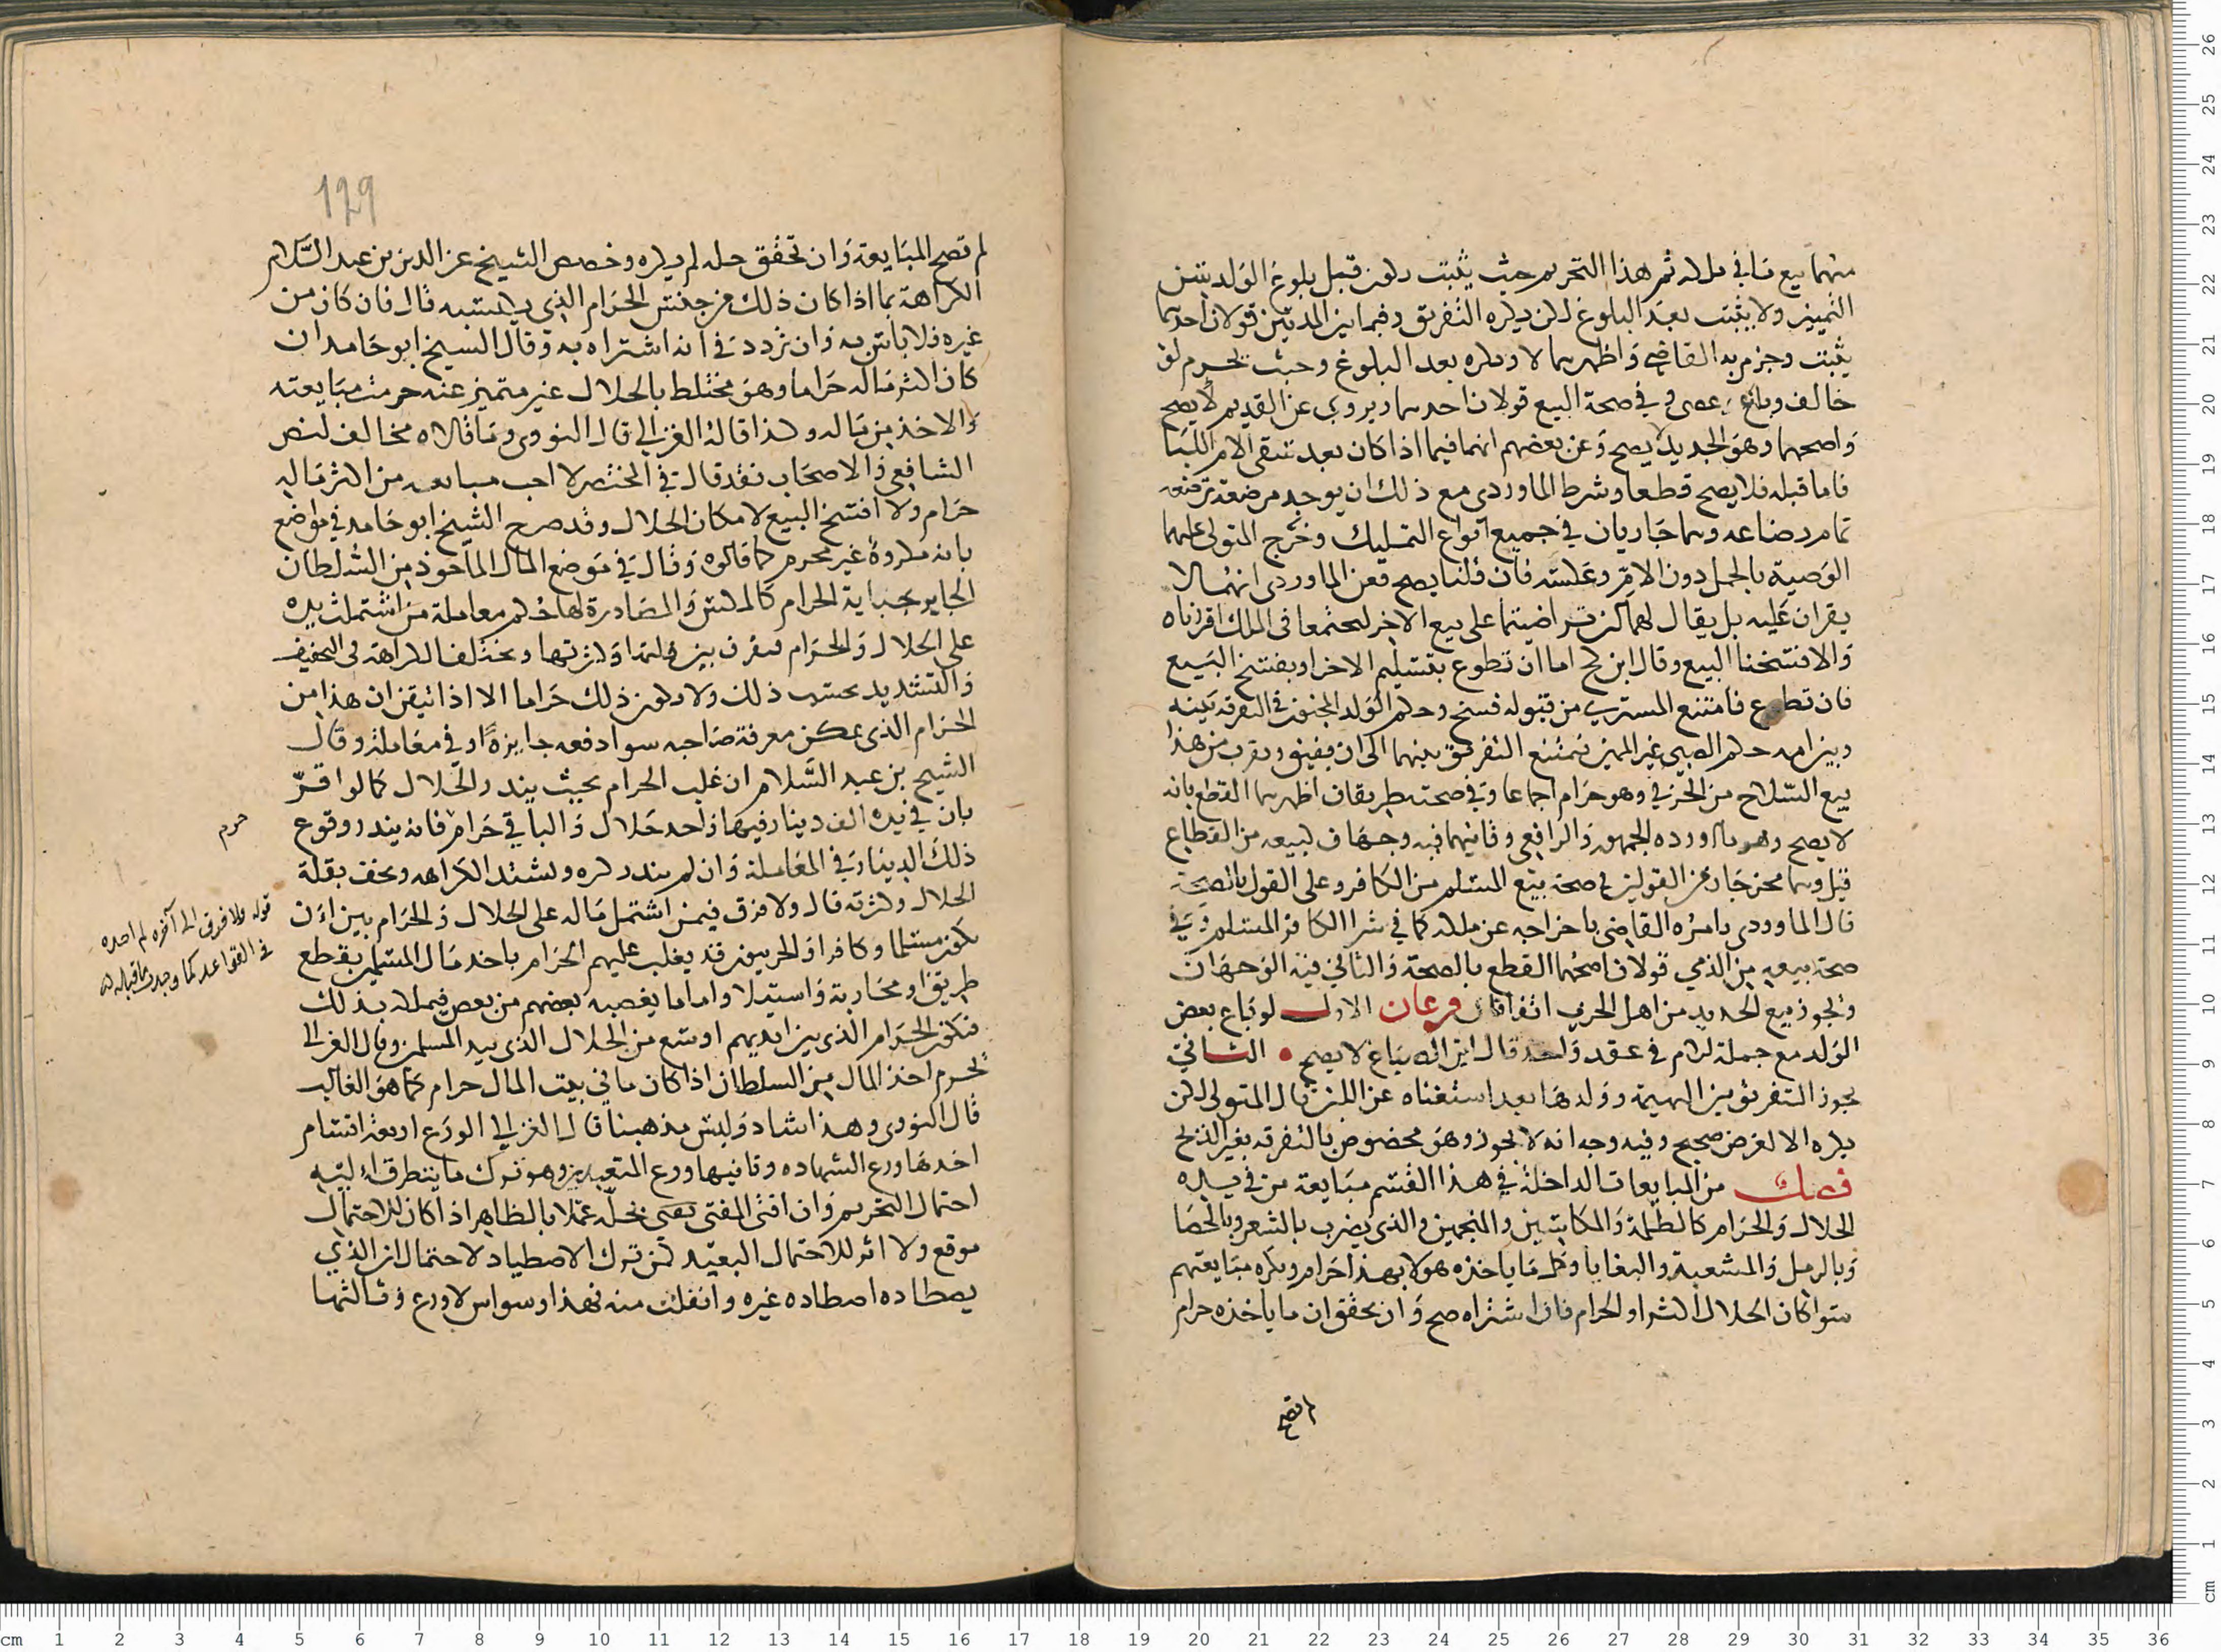 منهما بيع ما في ملكه ثم هذا التحريم حيث يثبت يكون قبل بلوغ الولد سن
التمييز ولا يثبت بعد البلوغ لكن يكره التفريق وفيما بين المدتين قولان احدهما
يثبت وجزم به القاضي واظهرهما لا ويكره بعد البلوغ وحيث يحرم لو
خالف وباع عصى وفي صحة البيع قولان احدهما ويروى عن القديم لا يصح
واصحهما وهو الجديد يصح وعن بعضهم انهما فيما اذا كان بعد سقي الام اللبا
فاما قبله فلا يصح قطعا وشرط الماوردي مع ذلك ان يوجد مرضعة ترضعه
تمام رضاعه وهما جاريان في جميع انواع التمليك وخرج المتولي عليهما
الوصية بالحمل دون الام وعكسه فان قلنا يصح فعن الماوردي انهما لا
يقران عليه بل يقال لهما ان تراضيتما على بيع الاخر ليجتمعا في الملك اقررناه
والا فسخنا البيع وقال ابن كج اما ان تطوع بتسليم الاخر او يفسخ البيع
فان تطوع فامتنع المشتري من قبوله فسخ وحكم الولد المجنون في التفرقة بينه
وبين امه حكم الصبي غير المميز فيمتنع التفريق بينهما الى ان يفيق ويقرب من هذا
بيع السلاح من الحربي وهو حرام اجماعا وفي صحته طريقان اظهرهما القطع بانه
لا يصح وهو ما اورده الجمهور والرافعي وثانيهما فيه وجهان لبيعه من القطاع
قيل وهما مخرجان من القولين في صحة بيع المسلم من الكافر وعلى القول بالصحة
قال الماوردي يامره القاضي باخراجه عن ملكه كما في شرا الكافر المسلم وفي
صحة بيعه من الذمي قولان اصحهما القطع بالصحة والثاني فيه الوجهان
ويجوز بيع الحديد من اهل الحرب اتفاقا فرعان الاول لو باع بعض
الولد مع جملة الام في عقد واحد قال ابن الصباغ لا يصح الثاني
يجوز التفريق بين البهيمة وولدها بعد استغناه عن اللبن قال المتولي لكن
يكره الا لغرض صحيح وفيه وجه انه لا يجوز وهو مخصوص بالتفرقة بغير الذبح
فصل من المبايعات الداخلة في هذا القسم مبايعة من في يده
الحلال والحرام كالظلمة والمكاسين والمنجمين والذي يضرب بالشعير وبالحصا
وبالرمل والمشعبذ والبغايا وكل ما ياخذه هولا بهذا حرام ويكره مبايعتهم
سوا كان الحلال اكثر او الحرام فان اشتراه صح وان تحقق ان ما ياخذه حرام
لم تصح
129
لم تصح المبايعة وان تحقق حله لم يكره وخصص الشيخ عز الدين بن عبد السلام
الكراهة بما اذا كان ذلك من جنس الحرام الذي يكتسبه قال فان كان من
غيره فلا باس به وان تردد في انه اشتراه به وقال الشيخ ابو حامد ان
كان اكثر ماله حراما وهو مختلط بالحلال غير متميز عنه حرمت مبايعته
والاخذ من ماله وكذا قاله الغزالي قال النووي وما قالاه مخالف لنص
الشافعي والاصحاب فقد قال في المختصر لا احب مبايعة من اكثر ماله
حرام ولا افسخ البيع لامكان الحلال وقد صرح الشيخ ابو حامد في مواضع
بانه مكروه غير محرم كما قالوه وقال في موضع المال الماخوذ من السلطان
الجاير بجباية الحرام كالمكس والمصادرة لها حكم معاملة من اشتملت يده
على الحلال والحرام فيفرق بين قلتها وكثرتها ويختلف الكراهة في التخفيف
والتشديد بحسب ذلك ولا يكون ذلك حراما الا اذا تيقن ان هذا من
الحرام الذي يمكن معرفة صاحبه سوا دفعه جايزة او في معاملة وقال
الشيخ بن عبد السلام ان غلب الحرام بحيث يندر الحلال كما لو اقر
بان في يده الف دينار فيها واحد حلال والباقي حرام فانه يندر وقوع
ذلك الدينار في المعاملة وان لم يندر كره ويشتد الكراهه ويخف بقلة
الحلال وكثرته قال ولا فرق فيمن اشتمل ماله على الحلال والحرام بين ان
يكون مسلما وكافرا والحربيون قد يغلب عليهم الحرام باخذ مال المسلم بقطع
طريق او محاربة واستيلا واما ما يغصبه بعضهم من بعض فيملك بذلك
فيكون الحرام الذي بين ايديهم اوسع من الحلال الذي بيد المسلمين وقال الغزالي
يحرم اخذ المال من السلطان اذا كان ما في بيت المال حرام كما هو الغالب
قال النووي وهذا شاذ وليس مذهبنا قال الغزالي الورع اربعة اقسام
احدها ورع الشهاده وثانيها ورع المتعبدين وهو ترك ما يتطرق اليه
احتمال التحريم وان افتى المفتي بحله عملا بالظاهر اذا كان للاحتمال
موقع ولا اثر للاحتمال البعيد كمن ترك الاصطياد لاحتمال ان الذي
يصطاده اصطاده غيره وانفلت منه فهذا وسواس لا ورع وثالثها
حرم
قوله ولا فرق الى آخره لم اجده
في القواعد كما وجدت ما قبله